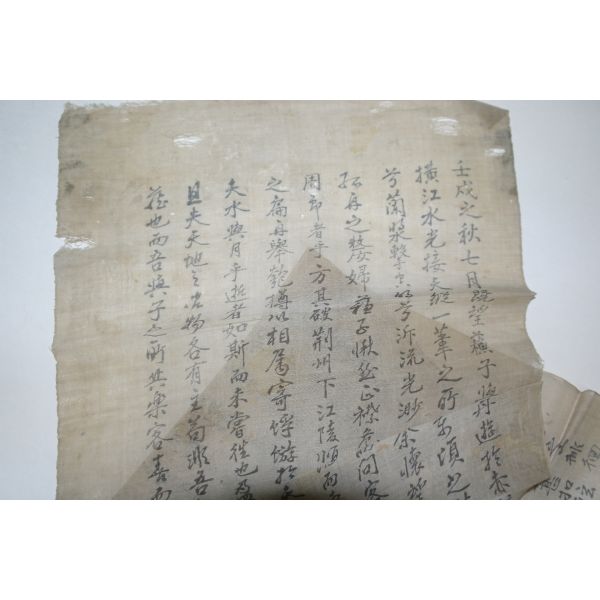 壬戌之秋七月既望蘇子與客泛舟遊於赤
橫江水光接天縱一葦之所如萬頃之
兮蘭槳擊空明兮泝流光渺余懷望
孤舟之嫠婦蘇子愀然正襟危問客
周郎者乎方其破荊州下江陵順而東
之扁舟舉匏樽以相屬寄蜉蝣於天
夫水與月乎逝者如斯而未嘗往也盈
且夫天地之間物各有主苟非吾
藏也而吾與子之所共樂客喜而